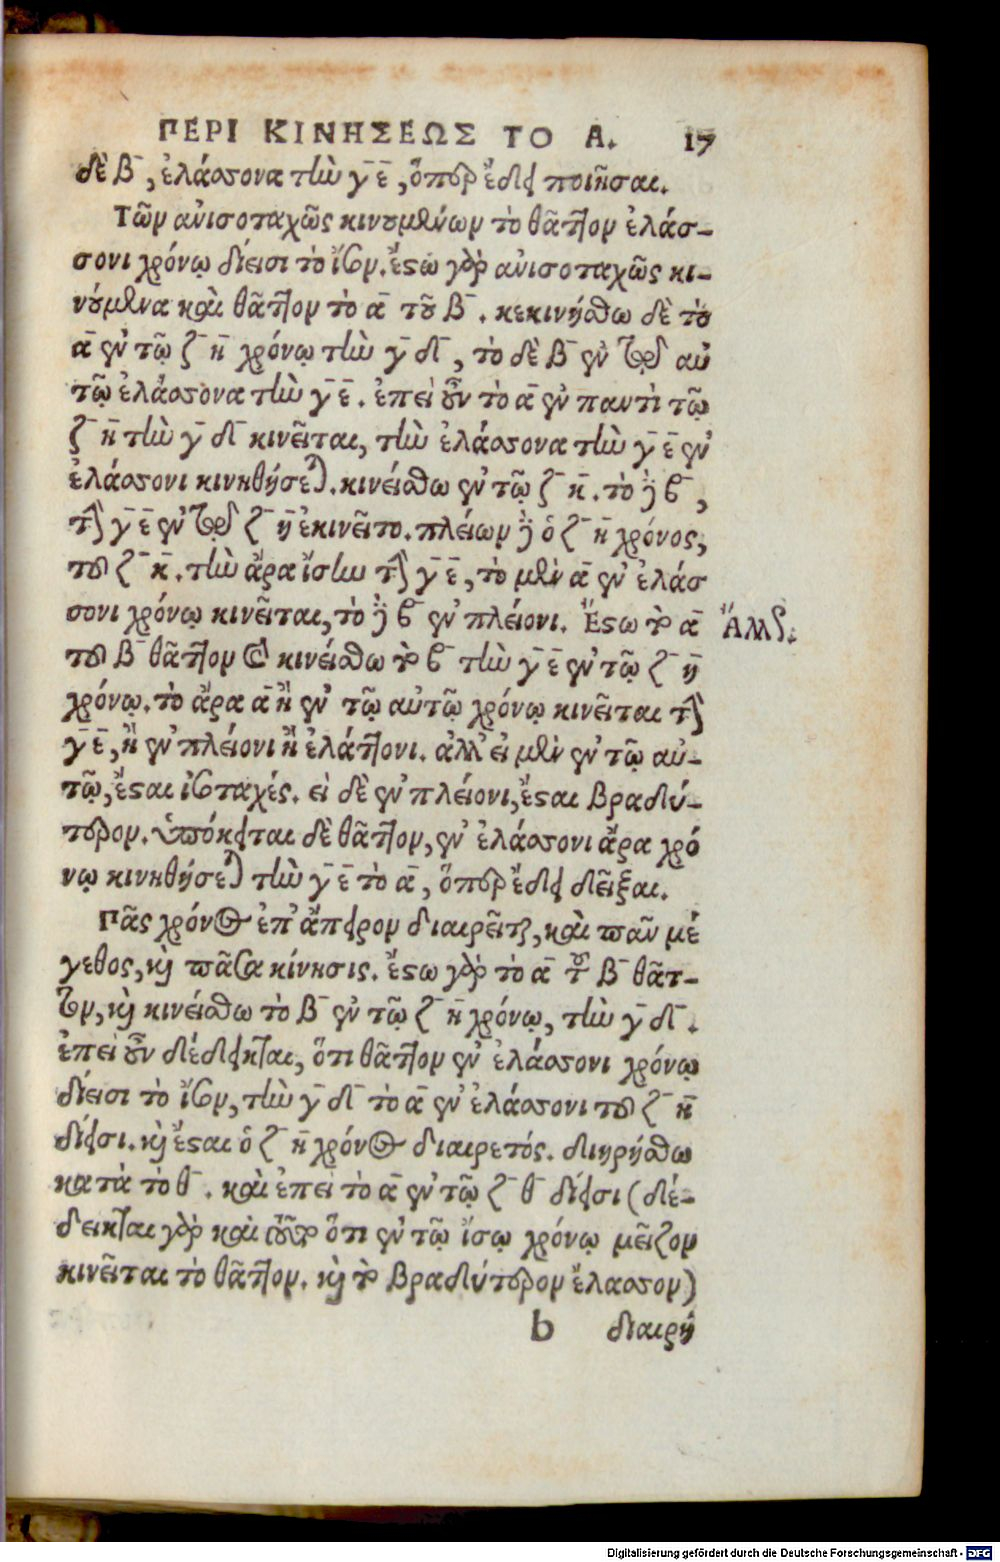 ΠΕΡΙ ΚΙΝΗΣΕΩΣ ΤΟ Α. 17
δὲ β̄, ἐλάσσονα τὴν γ̄ ε̄, ὅπερ ἔδει ποιῆσαι.
Τῶν ἀνισοταχῶς κινουμένων τὸ θᾶττον ἐλάσ-
σονι χρόνῳ δίεισι τὸ ἴσον. ἔστω γὰρ ἀνισοταχῶς κι-
νούμενα καὶ θᾶττον τὸ ᾱ τοῦ β̄. κεκινήσθω δὲ τὸ
ᾱ ἐν τῷ ζ̄ η̄ χρόνῳ τὴν γ̄ δ̄, τὸ δὲ β̄ ἐν τῷ αὐ
τῷ ἐλάσσονα τὴν γ̄ ε̄. ἐπεὶ οὖν τὸ ᾱ ἐν παντὶ τῷ
ζ̄ η̄ τὴν γ̄ δ̄ κινεῖται, τὴν ἐλάσσονα τὴν γ̄ ε̄ ἐν
ἐλάσσονι κινηθήσεται. κινείσθω ἐν τῷ ζ̄ κ̄. τὸ δὲ β̄,
τὴν γ̄ ε̄ ἐν τῷ ζ̄ η̄ ἐκινεῖτο. πλείων δὲ ὁ ζ̄ η̄ χρόνος,
τοῦ ζ̄ κ̄. τὴν ἄρα ἴσην τὴν γ̄ ε̄, τὸ μὲν ᾱ ἐν ἐλάσ
σονι χρόνῳ κινεῖται, τὸ δὲ β̄ ἐν πλείονι. Ἔστω τὸ ᾱ
Ἄλλως.
τοῦ β̄ θᾶττον καὶ κινείσθω τὸ β̄ τὴν γ̄ ε̄ ἐν τῷ ζ̄ η̄
χρόνῳ. τὸ ἄρα ᾱ ἢ ἐν τῷ αὐτῷ χρόνῳ κινεῖται τὴν
γ̄ ε̄, ἢ ἐν πλείονι ἢ ἐλάττονι. ἀλλ' εἰ μὲν ἐν τῷ αὐ-
τῷ, ἔσται ἰσοταχές. εἰ δὲ ἐν πλείονι, ἔσται βραδύ-
τερον. ὑπόκειται δὲ θᾶττον, ἐν ἐλάσσονι ἄρα χρό
νῳ κινηθήσεται τὴν γ̄ ε̄ τὸ ᾱ, ὅπερ ἔδει δεῖξαι.
Πᾶς χρόνος ἐπ' ἄπειρον διαιρεῖται, καὶ πᾶν μέ
γεθος, καὶ πᾶσα κίνησις. ἔστω γὰρ τὸ ᾱ τοῦ β̄ θᾶτ-
τον, καὶ κινείσθω τὸ β̄ ἐν τῷ ζ̄ η̄ χρόνῳ, τὴν γ̄ δ̄.
ἐπεὶ οὖν δέδεικται, ὅτι θᾶττον ἐν ἐλάσσονι χρόνῳ
δίεισι τὸ ἴσον, τὴν γ̄ δ̄ τὸ ᾱ ἐν ἐλάσσονι τοῦ ζ̄ η̄
δίεισι. καὶ ἔσται ὁ ζ̄ η̄ χρόνος διαιρετός. διῃρήσθω
κατὰ τὸ θ̄. καὶ ἐπεὶ τὸ ᾱ ἐν τῷ ζ̄ θ̄ δίεισι (δέ-
δεικται γὰρ καὶ τοῦτο ὅτι ἐν τῷ ἴσῳ χρόνῳ μεῖζον
κινεῖται τὸ θᾶττον. καὶ τὸ βραδύτερον ἔλασσον)
b διαιρή
Digitalisierung gefördert durch die Deutsche Forschungsgemeinschaft - DFG